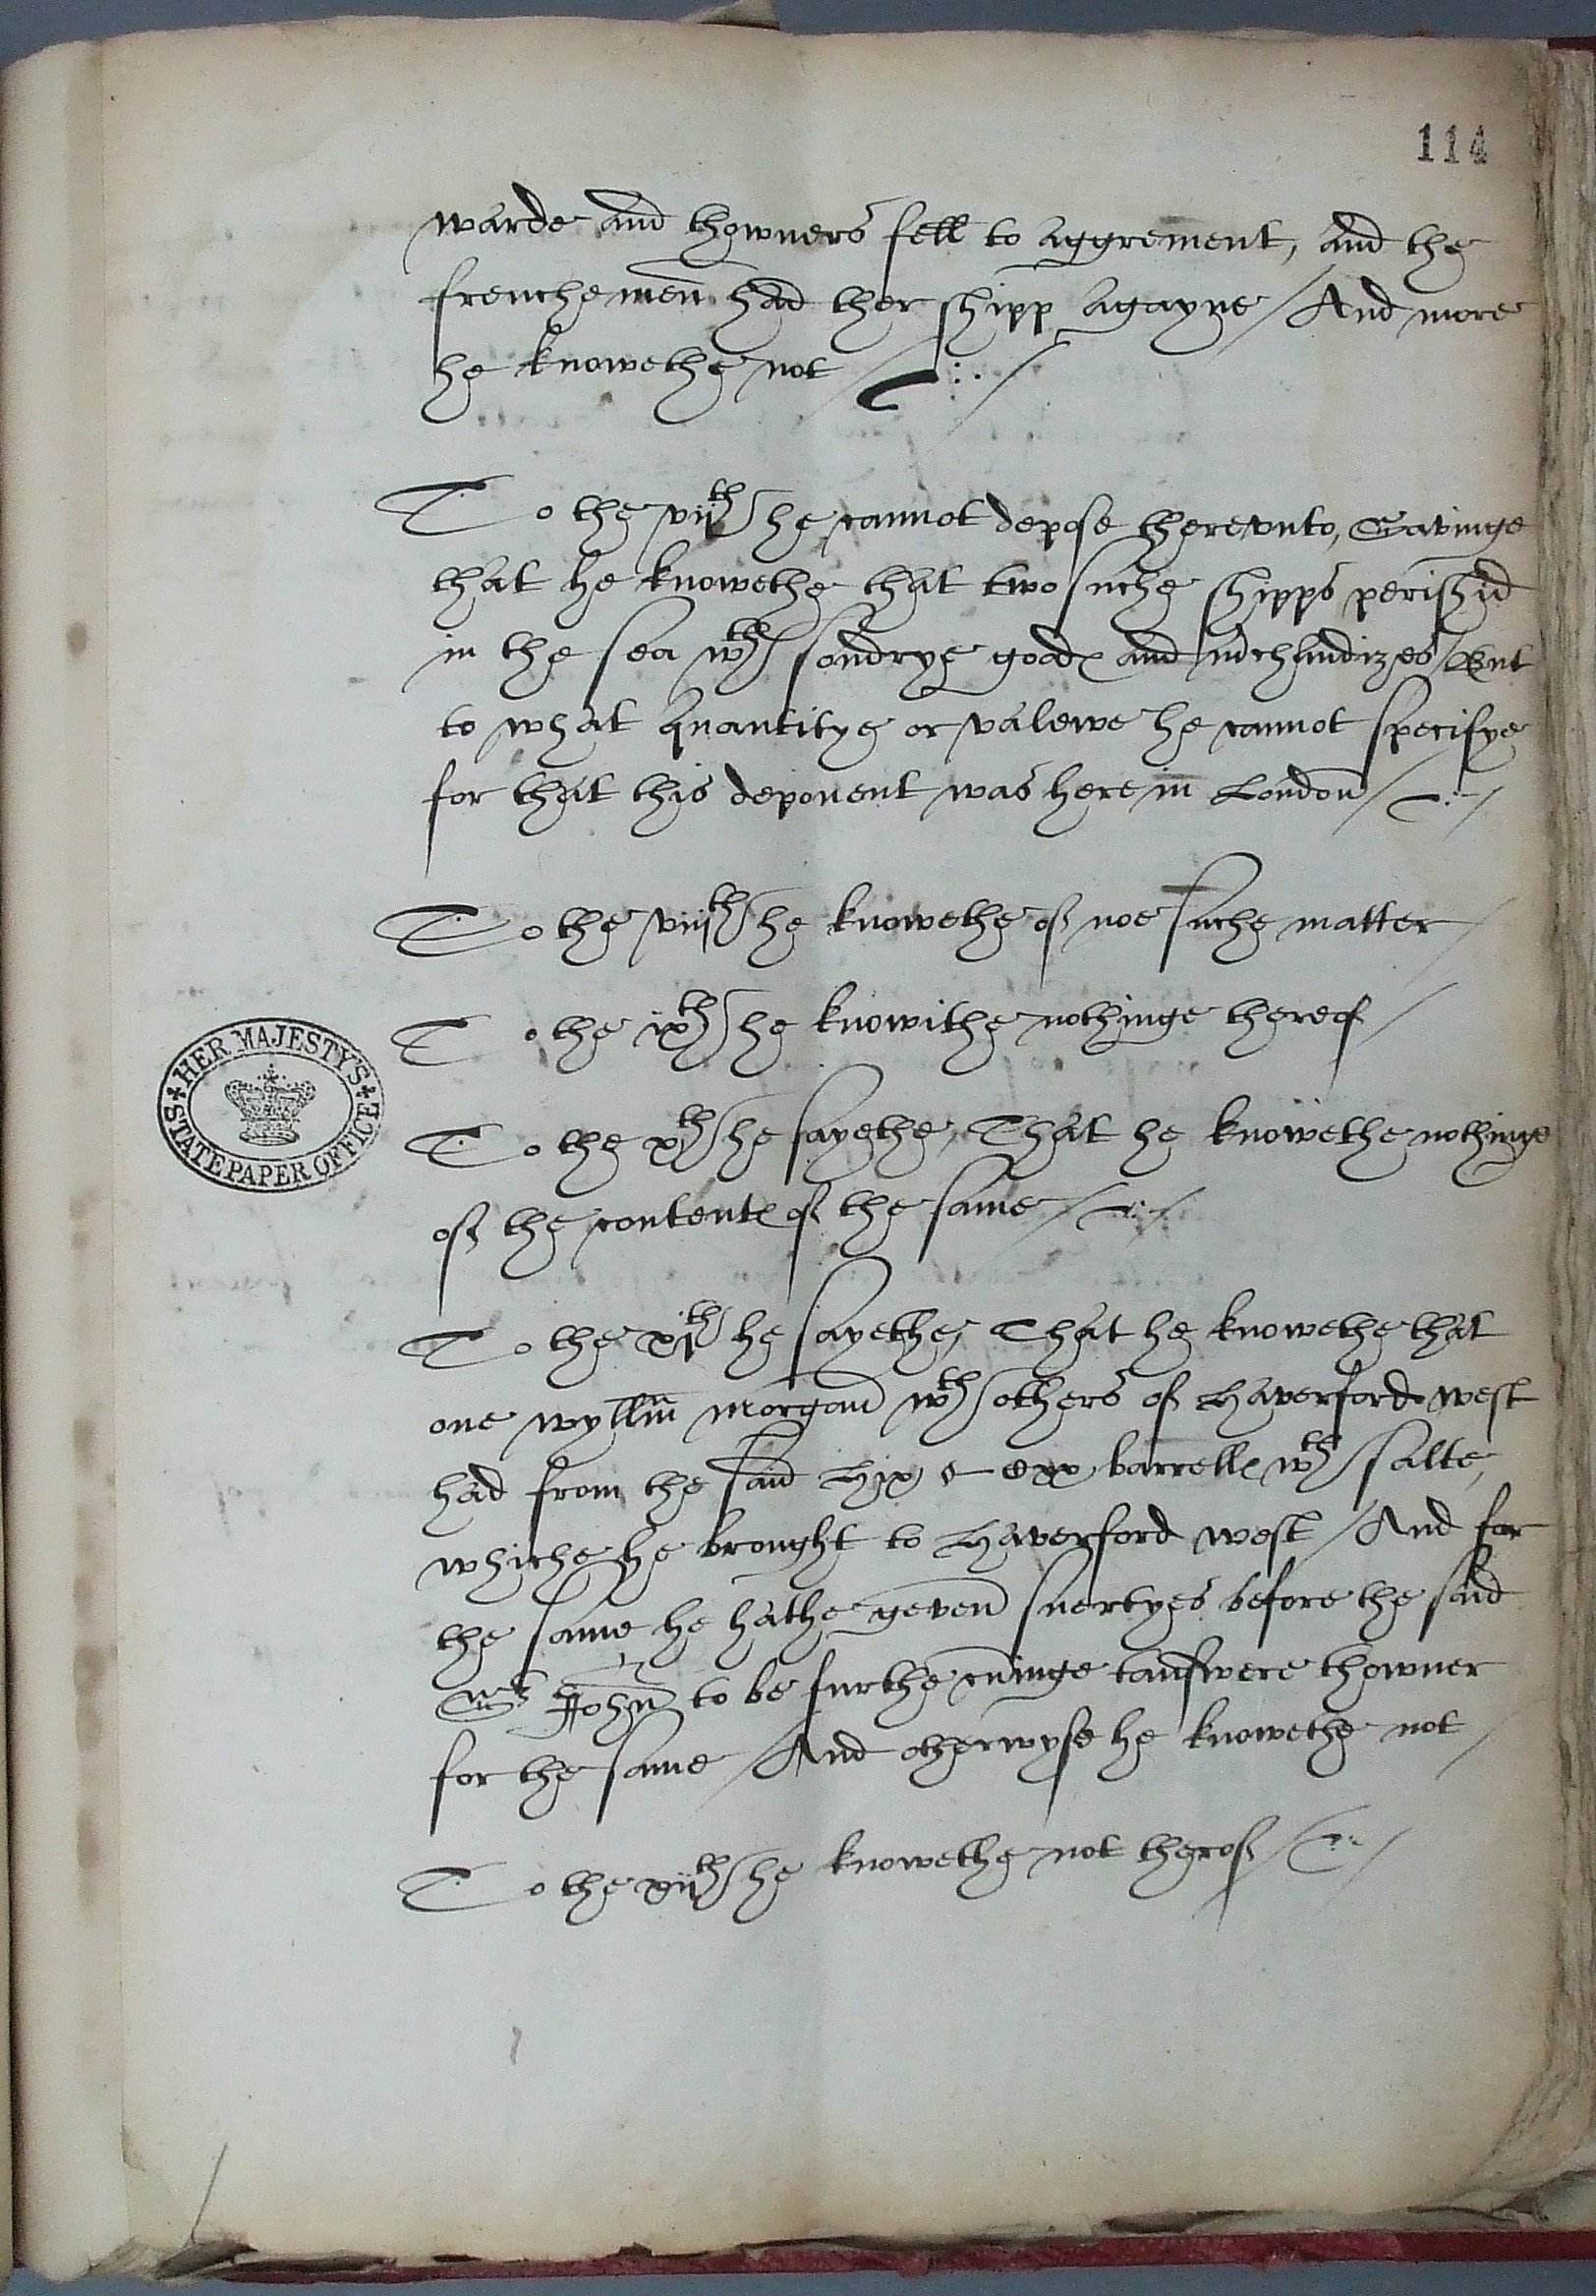 114
warde and thowners fell to aggrement, and the
frenche men had ther shipp agayne / And more
he knowethe not /
To the vijth he cannot depose therevnto, Savinge
that he knowethe that two suche shipps perishid
in the sea wth sondrye goodes and mchandizes / But
to what quantitye or valewe he cannot specifye
for that this deponent was here in London /
To the viijth he knowethe of noe suche matter /
To the ixth he knowithe nothinge thereof /
To the xth he sayethe, That he knowethe nothinge
of the contentes of the same /
To the xjth he sayethe, That he knowethe that
one wyllm morgan wth others of Haverforde west
had from the said barrelles wth salte,
whiche he brought to Haverford west / And for
the same he hathe geven suertyes before the said
Sr John to be furthe cminge tanswere thowner
for the same / And otherwyse he knowethe not /
To the xijth he knowethe not therof /
HER MAJESTY'S
STATE PAPER OFFICE